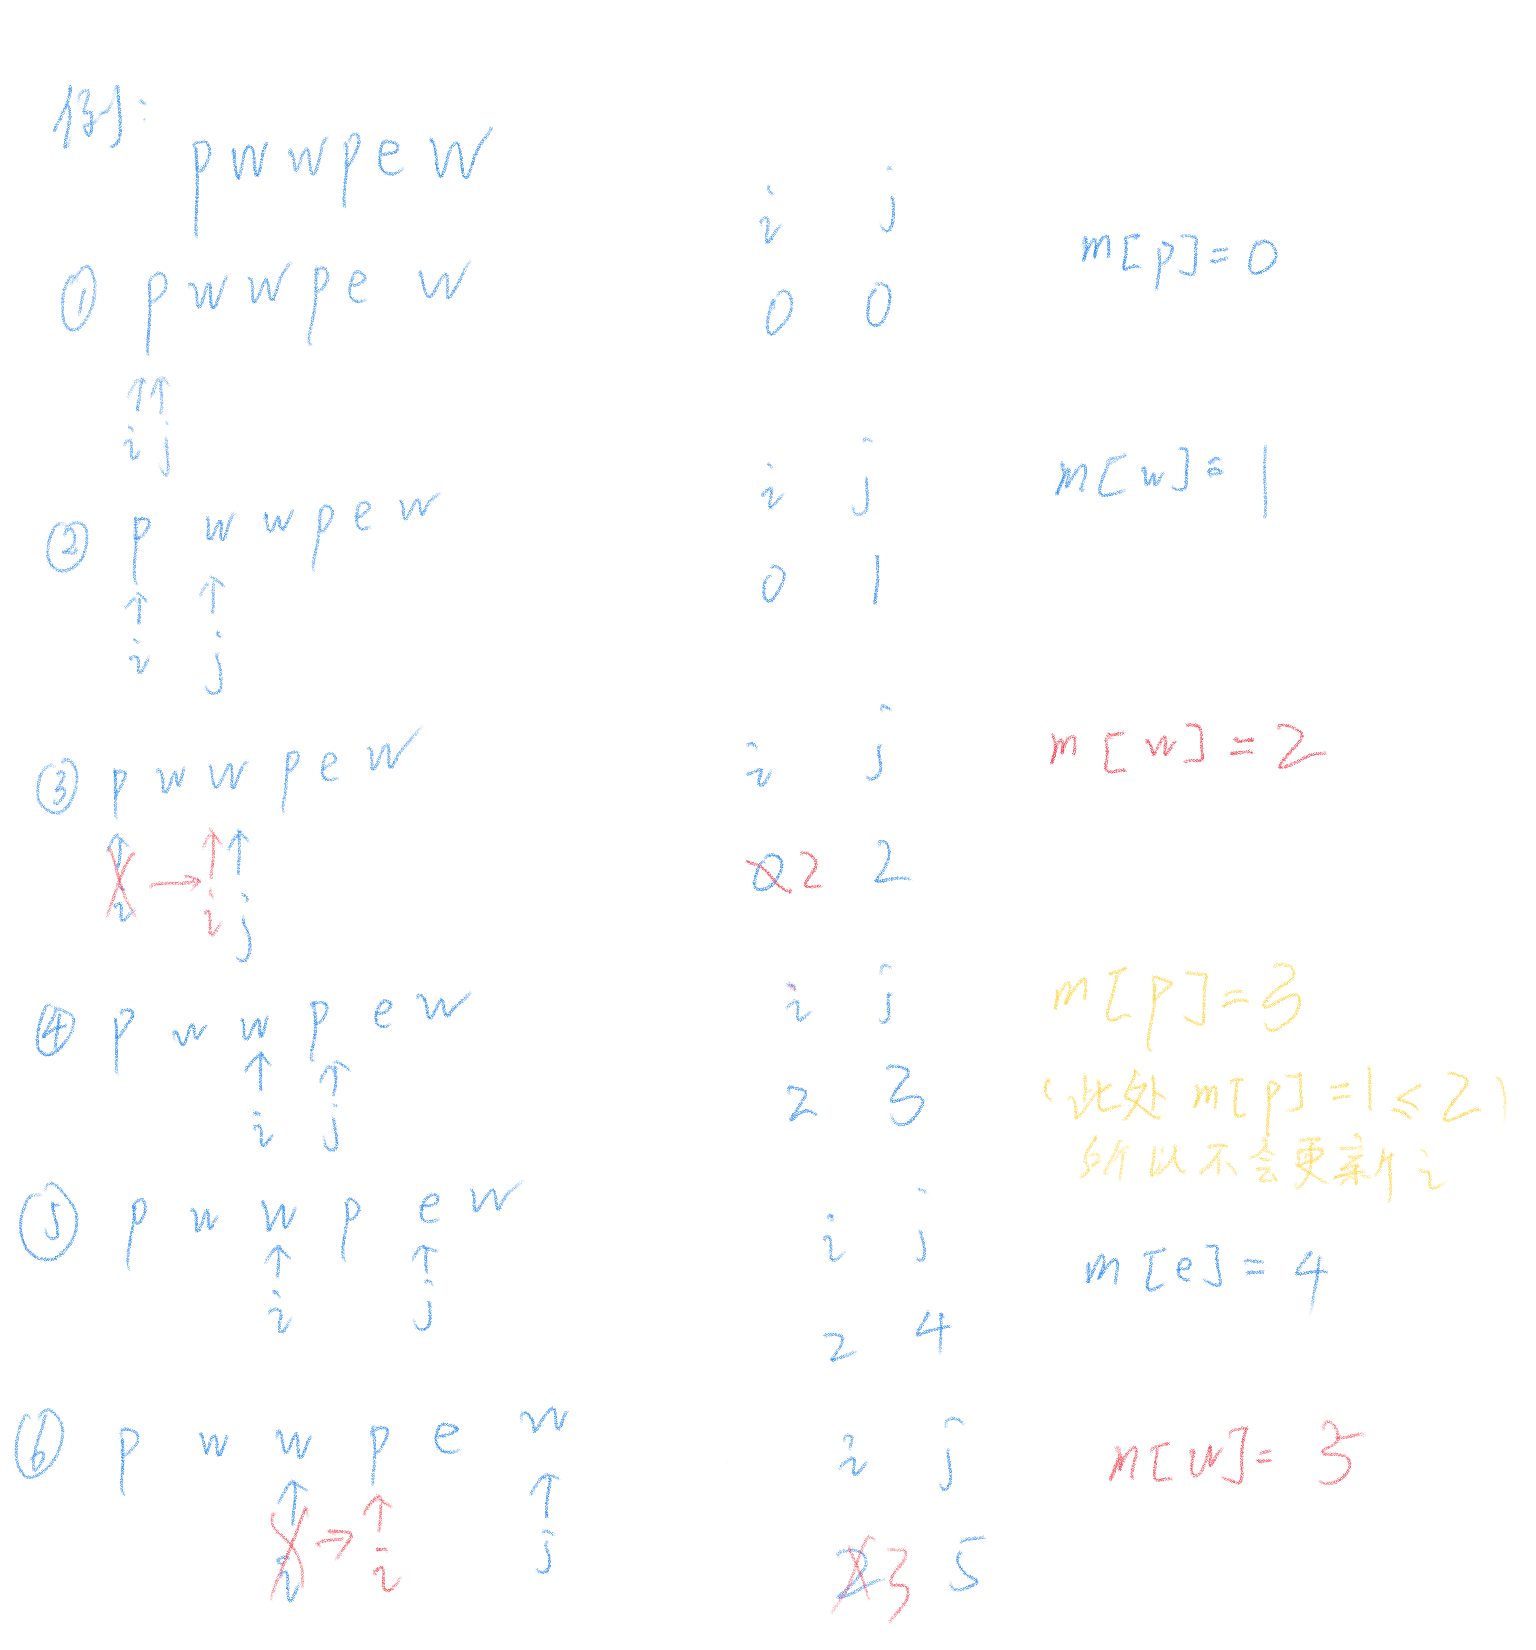 例:
pwwpew
i j
m[p]=0
① pwwpew
0 0
↑↑
i j
i j
m[w]=1
② pwwpew
0 1
↑ ↑
i j
i j
m[w]=2
③ pwwpew
0 2 2
↑ → ↑ ↑
i i j
i j
m[p]=3
④ pwwpew
↑ ↑
2 3
(此处 m[p]=1≤2)
i j
所以不会更新 i
⑤ pwwpew
i j
m[e]=4
↑ ↑
i j
2 4
⑥ pwwpew
i j
m[w]=
↑ → ↑ ↑
i i j
2 3 5